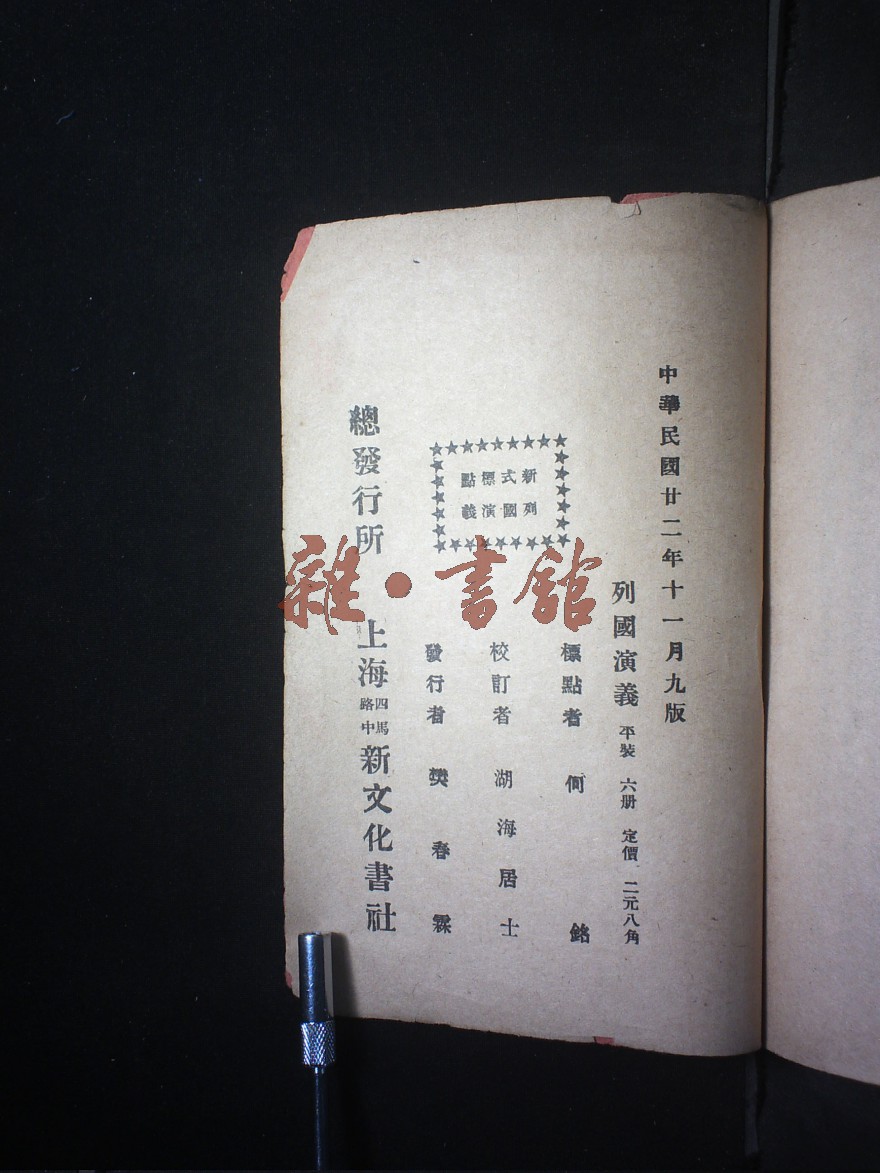 中華民國廿二年十一月九版
列國演義 平裝 六册 定價 二元八角
新式標點
列國演義
標點者 何銘
校訂者 湖海居士
發行者 樊春霖
總發行所 上海四馬路中新文化書社
雜·書館